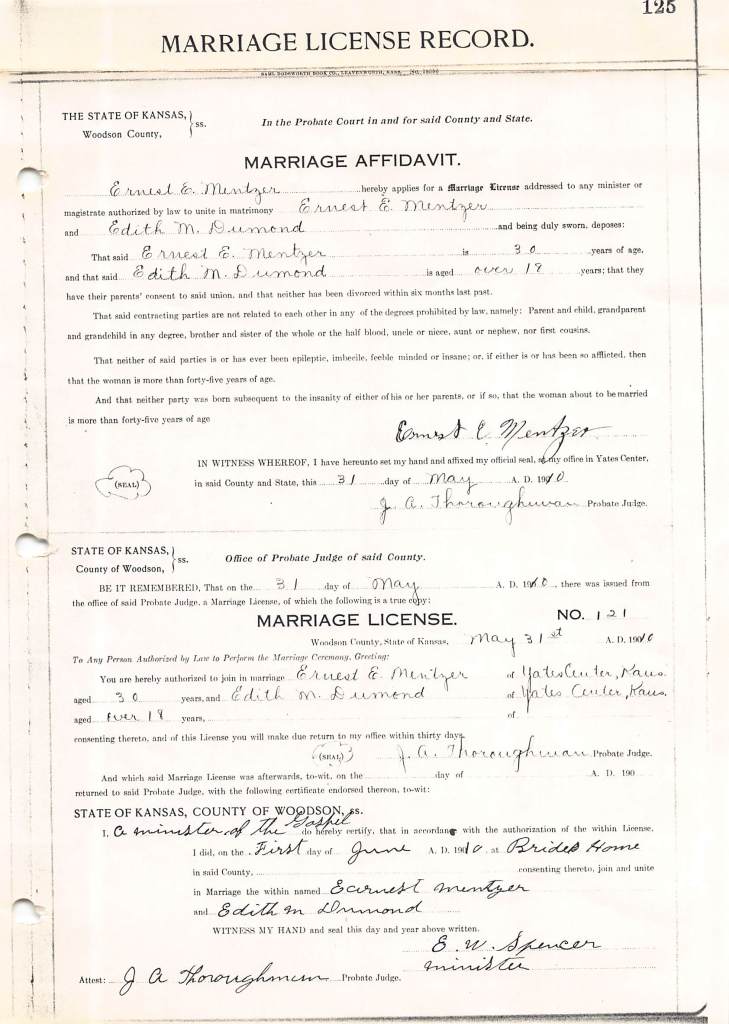 125
MARRIAGE LICENSE RECORD.
SAML DODSWORTH BOOK CO., LEAVENWORTH, KANS.
THE STATE OF KANSAS, } ss.
Woodson County,
In the Probate Court in and for said County and State.
MARRIAGE AFFIDAVIT.
Ernest E. Mentzer hereby applies for a Marriage License addressed to any minister or
magistrate authorized by law to unite in matrimony Ernest E. Mentzer
and Edith M. Dumond and being duly sworn, deposes:
That said Ernest E. Mentzer is 30 years of age,
and that said Edith M. Dumond is aged over 18 years; that they
have their parents' consent to said union, and that neither has been divorced within six months last past.
That said contracting parties are not related to each other in any of the degrees prohibited by law, namely: Parent and child, grandparent
and grandchild in any degree, brother and sister of the whole or the half blood, uncle or niece, aunt or nephew, nor first cousins.
That neither of said parties is or has ever been epileptic, imbecile, feeble minded or insane; or, if either is or has been so afflicted, then
that the woman is more than forty-five years of age.
And that neither party was born subsequent to the insanity of either of his or her parents, or if so, that the woman about to be married
is more than forty-five years of age
Ernest E Mentzer
IN WITNESS WHEREOF, I have hereunto set my hand and affixed my official seal, at my office in Yates Center,
(SEAL) in said County and State, this 31 day of May A. D. 1910.
J. A. Thoroughman Probate Judge.
STATE OF KANSAS, } ss.
County of Woodson,
Office of Probate Judge of said County.
BE IT REMEMBERED, That on the 31 day of May A. D. 1910, there was issued from
the office of said Probate Judge, a Marriage License, of which the following is a true copy:
MARRIAGE LICENSE. NO. 121
Woodson County, State of Kansas, May 31st A. D. 1910
To Any Person Authorized by Law to Perform the Marriage Ceremony, Greeting:
You are hereby authorized to join in marriage Ernest E. Mentzer of Yates Center, Kans.
aged 30 years, and Edith M. Dumond of Yates Center, Kans.
aged over 18 years, of
consenting thereto, and of this License you will make due return to my office within thirty days.
(SEAL) J. A. Thoroughman Probate Judge.
And which said Marriage License was afterwards, to-wit, on the day of A. D. 190
returned to said Probate Judge, with the following certificate endorsed thereon, to-wit:
STATE OF KANSAS, COUNTY OF WOODSON, ss.
I, a minister of the Gospel do hereby certify, that in accordance with the authorization of the within License,
I did, on the First day of June A. D. 1910 at Brides Home
in said County, consenting thereto, join and unite
in Marriage the within named Earnest Mentzer
and Edith M Dumond
WITNESS MY HAND and seal this day and year above written.
E. W. Spencer
minister
Attest: J A Thoroughman Probate Judge.